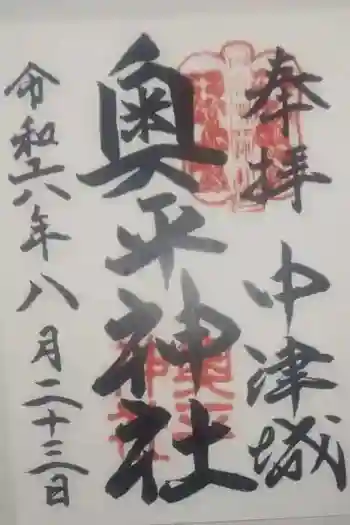 奉拝 中津城
奥平神社
令和六年八月二十三日